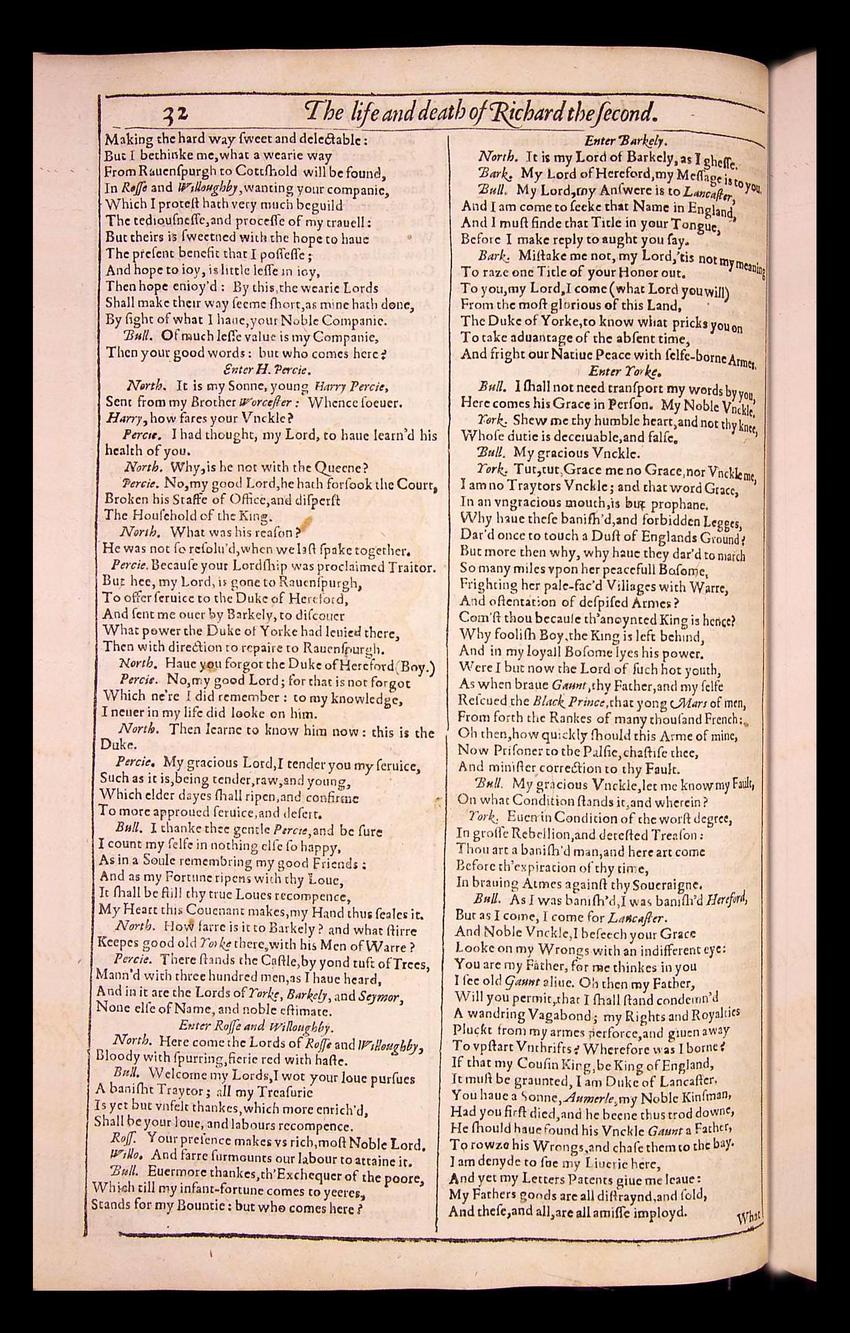 32
The life and death of Richard the second.
Making the hard way sweet and delectable:
But I bethinke me, what a wearie way
From Rauenspurgh to Cottshold will be found,
In Rosse and Willoughby, wanting your companie,
Which I protest hath very much beguild
The tediousnesse, and processe of my trauell:
But theirs is sweetned with the hope to haue
The present benefit that I possesse;
And hope to ioy, is little lesse in ioy,
Then hope enioy'd: By this, the wearie Lords
Shall make their way seeme short, as mine hath done,
By sight of what I haue, your Noble Companie.
Bull. Of much lesse value is my Companie,
Then your good words: but who comes here?
Enter H. Percie.
North. It is my Sonne, young Harry Percie,
Sent from my Brother Worcester: Whence soeuer.
Harry, how fares your Vnckle?
Percie. I had thought, my Lord, to haue learn'd his
health of you.
North. Why, is he not with the Queene?
Percie. No, my good Lord, he hath forsook the Court,
Broken his Staffe of Office, and disperst
The Houshold of the King.
North. What was his reason?
He was not so resolu'd, when we last spake together.
Percie. Because your Lordship was proclaimed Traitor.
But hee, my Lord, is gone to Rauenspurgh,
To offer seruice to the Duke of Hereford,
And sent me ouer by Barkely, to discouer
What power the Duke of Yorke had leuied there,
Then with direction to repaire to Rauenspurgh.
North. Haue you forgot the Duke of Hereford (Boy.)
Percie. No, my good Lord; for that is not forgot
Which ne're I did remember: to my knowledge,
I neuer in my life did looke on him.
North. Then learne to know him now: this is the
Duke.
Percie. My gracious Lord, I tender you my seruice,
Such as it is, being tender, raw, and young,
Which elder dayes shall ripen, and confirme
To more approued seruice, and desert.
Bull. I thanke thee gentle Percie, and be sure
I count my selfe in nothing else so happy,
As in a Soule remembring my good Friends:
And as my Fortune ripens with thy Loue,
It shall be still thy true Loues recompence,
My Heart this Couenant makes, my Hand thus seales it.
North. How farre is it to Barkely? and what stirre
Keepes good old Yorke there, with his Men of Warre?
Percie. There stands the Castle, by yond tuft of Trees,
Mann'd with three hundred men, as I haue heard,
And in it are the Lords of Yorke, Barkely, and Seymor,
None else of Name, and noble estimate.
Enter Rosse and Willoughby.
North. Here come the Lords of Rosse and Willoughby,
Bloody with spurring, fierie red with haste.
Bull. Welcome my Lords, I wot your loue pursues
A banisht Traytor; all my Treasurie
Is yet but vnfelt thankes, which more enrich'd,
Shall be your loue, and labours recompence.
Ross. Your presence makes vs rich, most Noble Lord.
Willo. And farre surmounts our labour to attaine it.
Bull. Euermore thankes, th'Exchequer of the poore,
Which till my infant-fortune comes to yeeres,
Stands for my Bountie: but who comes here?
Enter Barkely.
North. It is my Lord of Barkely, as I ghesse.
Bark. My Lord of Hereford, my Message is to you.
Bull. My Lord, my Answere is to Lancaster,
And I am come to seeke that Name in England,
And I must finde that Title in your Tongue,
Before I make reply to aught you say.
Bark. Mistake me not, my Lord, 'tis not my meaning
To raze one Title of your Honor out.
To you, my Lord, I come (what Lord you will)
From the most glorious of this Land,
The Duke of Yorke, to know what pricks you on
To take aduantage of the absent time,
And fright our Natiue Peace with selfe-borne Armes.
Enter Yorke.
Bull. I shall not need transport my words by you,
Here comes his Grace in Person. My Noble Vnckle.
York. Shew me thy humble heart, and not thy knee,
Whose dutie is deceiuable, and false.
Bull. My gracious Vnckle.
York. Tut, tut, Grace me no Grace, nor Vnckle me,
I am no Traytors Vnckle; and that word Grace,
In an vngracious mouth, is but prophane.
Why haue these banish'd, and forbidden Legges,
Dar'd once to touch a Dust of Englands Ground?
But more then why, why haue they dar'd to march
So many miles vpon her peacefull Bosome,
Frighting her pale-fac'd Villages with Warre,
And ostentation of despised Armes?
Com'st thou because th'anoynted King is hence?
Why foolish Boy, the King is left behind,
And in my loyall Bosome lyes his power.
Were I but now the Lord of such hot youth,
As when braue Gaunt, thy Father, and my selfe
Rescued the Black Prince, that yong Mars of men,
From forth the Rankes of many thousand French:
Oh then, how quickly should this Arme of mine,
Now Prisoner to the Palsie, chastise thee,
And minister correction to thy Fault.
Bull. My gracious Vnckle, let me know my Fault,
On what Condition stands it, and wherein?
York. Euen in Condition of the worst degree,
In grosse Rebellion, and detested Treason:
Thou art a banish'd man, and here art come
Before th'expiration of thy time,
In brauing Armes against thy Soueraigne.
Bull. As I was banish'd, I was banish'd Hereford,
But as I come, I come for Lancaster.
And Noble Vnckle, I beseech your Grace
Looke on my Wrongs with an indifferent eye:
You are my Father, for me thinkes in you
I see old Gaunt aliue. Oh then my Father,
Will you permit, that I shall stand condemn'd
A wandring Vagabond; my Rights and Royalties
Pluckt from my armes perforce, and giuen away
To vpstart Vnthrifts? Wherefore was I borne?
If that my Cousin King, be King of England,
It must be graunted, I am Duke of Lancaster.
You haue a Sonne, Aumerle, my Noble Kinsman,
Had you first died, and he beene thus trod downe,
He should haue found his Vnckle Gaunt a Father,
To rowze his Wrongs, and chase them to the bay.
I am denyde to sue my Liuerie here,
And yet my Letters Patents giue me leaue:
My Fathers goods are all distraynd, and sold,
And these, and all, are all amisse imployd.
What